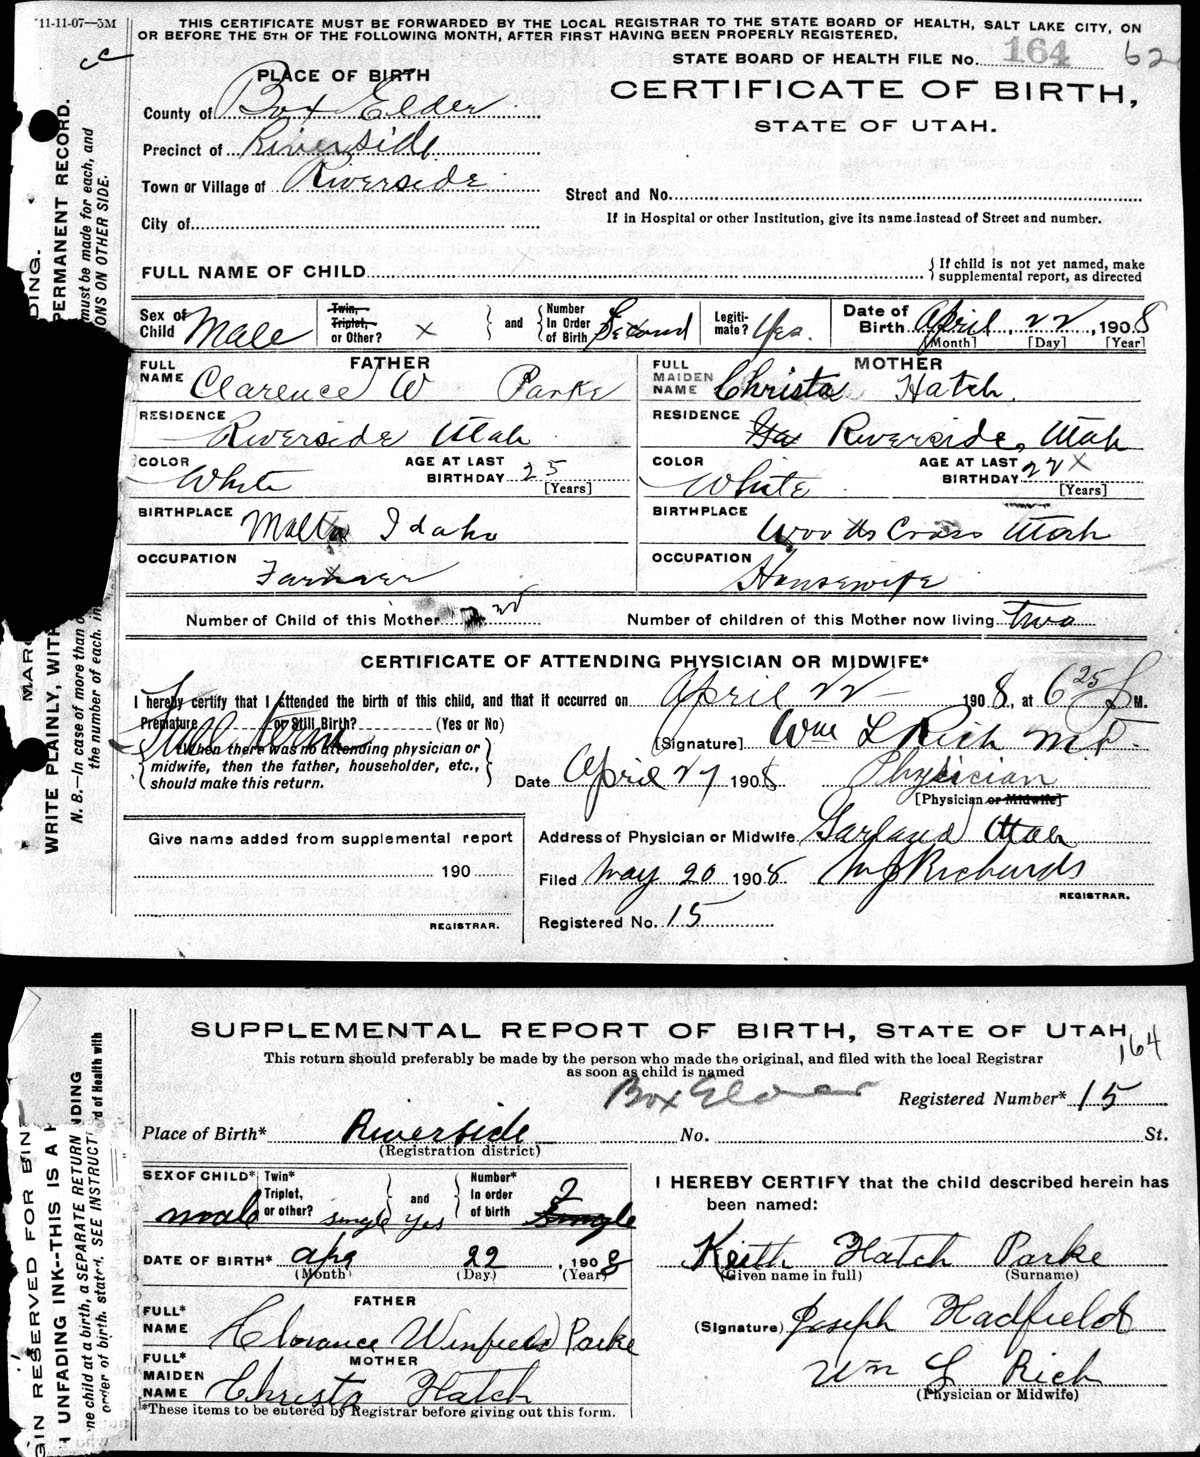 11-11-07—5M
THIS CERTIFICATE MUST BE FORWARDED BY THE LOCAL REGISTRAR TO THE STATE BOARD OF HEALTH, SALT LAKE CITY, ON
OR BEFORE THE 5TH OF THE FOLLOWING MONTH, AFTER FIRST HAVING BEEN PROPERLY REGISTERED.
STATE BOARD OF HEALTH FILE No. 164
PLACE OF BIRTH
CERTIFICATE OF BIRTH,
STATE OF UTAH.
County of Box Elder
Precinct of Riverside
Town or Village of Riverside
Street and No.
City of
If in Hospital or other Institution, give its name instead of Street and number.
FULL NAME OF CHILD
{ If child is not yet named, make
supplemental report, as directed
Sex of Child Male Twin, Triplet, or Other? X } and { Number In Order of Birth Second Legiti-mate? Yes. Date of Birth April, 22, 1908
[Month] [Day] [Year]
FATHER
FULL NAME Clarence W Parke
RESIDENCE Riverside Utah
COLOR White AGE AT LAST BIRTHDAY 25 [Years]
BIRTHPLACE Malta Idaho
OCCUPATION Farmer
MOTHER
FULL MAIDEN NAME Christa Hatch.
RESIDENCE Riverside, Utah
COLOR White. AGE AT LAST BIRTHDAY 22 X [Years]
BIRTHPLACE Woods Cross Utah
OCCUPATION Housewife
Number of Child of this Mother 2nd Number of children of this Mother now living two
CERTIFICATE OF ATTENDING PHYSICIAN OR MIDWIFE*
I hereby certify that I attended the birth of this child, and that it occurred on April 22 1908, at 6 25 P M.
Premature or Still Birth? (Yes or No)
Full term
{ When there was no attending physician or
midwife, then the father, householder, etc.,
should make this return. }
[Signature] Wm L Rich M D.
Date April 27 1908 Physician
[Physician or Midwife]
Give name added from supplemental report
190
REGISTRAR.
Address of Physician or Midwife Garland Utah
Filed May 20 1908 M J Richards
REGISTRAR.
Registered No. 15
WRITE PLAINLY, WITH
PERMANENT RECORD.
N. B.—In case of more than
the number of each. in
must be made for each, and
ONS ON OTHER SIDE.
SUPPLEMENTAL REPORT OF BIRTH, STATE OF UTAH
164
This return should preferably be made by the person who made the original, and filed with the local Registrar
as soon as child is named
Box Elder
Registered Number* 15
Place of Birth* Riverside No. St.
(Registration district)
SEX OF CHILD* male Twin* Triplet, or other? single } and yes { Number* In order of birth 2 Single
DATE OF BIRTH* Apr 22, 1908
(Month) (Day) (Year)
FATHER
FULL* NAME Clorance Winfield Parke
MOTHER
FULL* MAIDEN NAME Christa Hatch
*These items to be entered by Registrar before giving out this form.
I HEREBY CERTIFY that the child described herein has
been named:
Keith Hatch Parke
(Given name in full) (Surname)
(Signature) Joseph Hadfield
Wm L Rich
(Physician or Midwife)
GIN RESERVED FOR BIN
UNFADING INK--THIS IS A
ne child at a birth, a SEPARATE RETURN
order of birth. stated. SEE INSTRUCT
NDING
rd of Health with